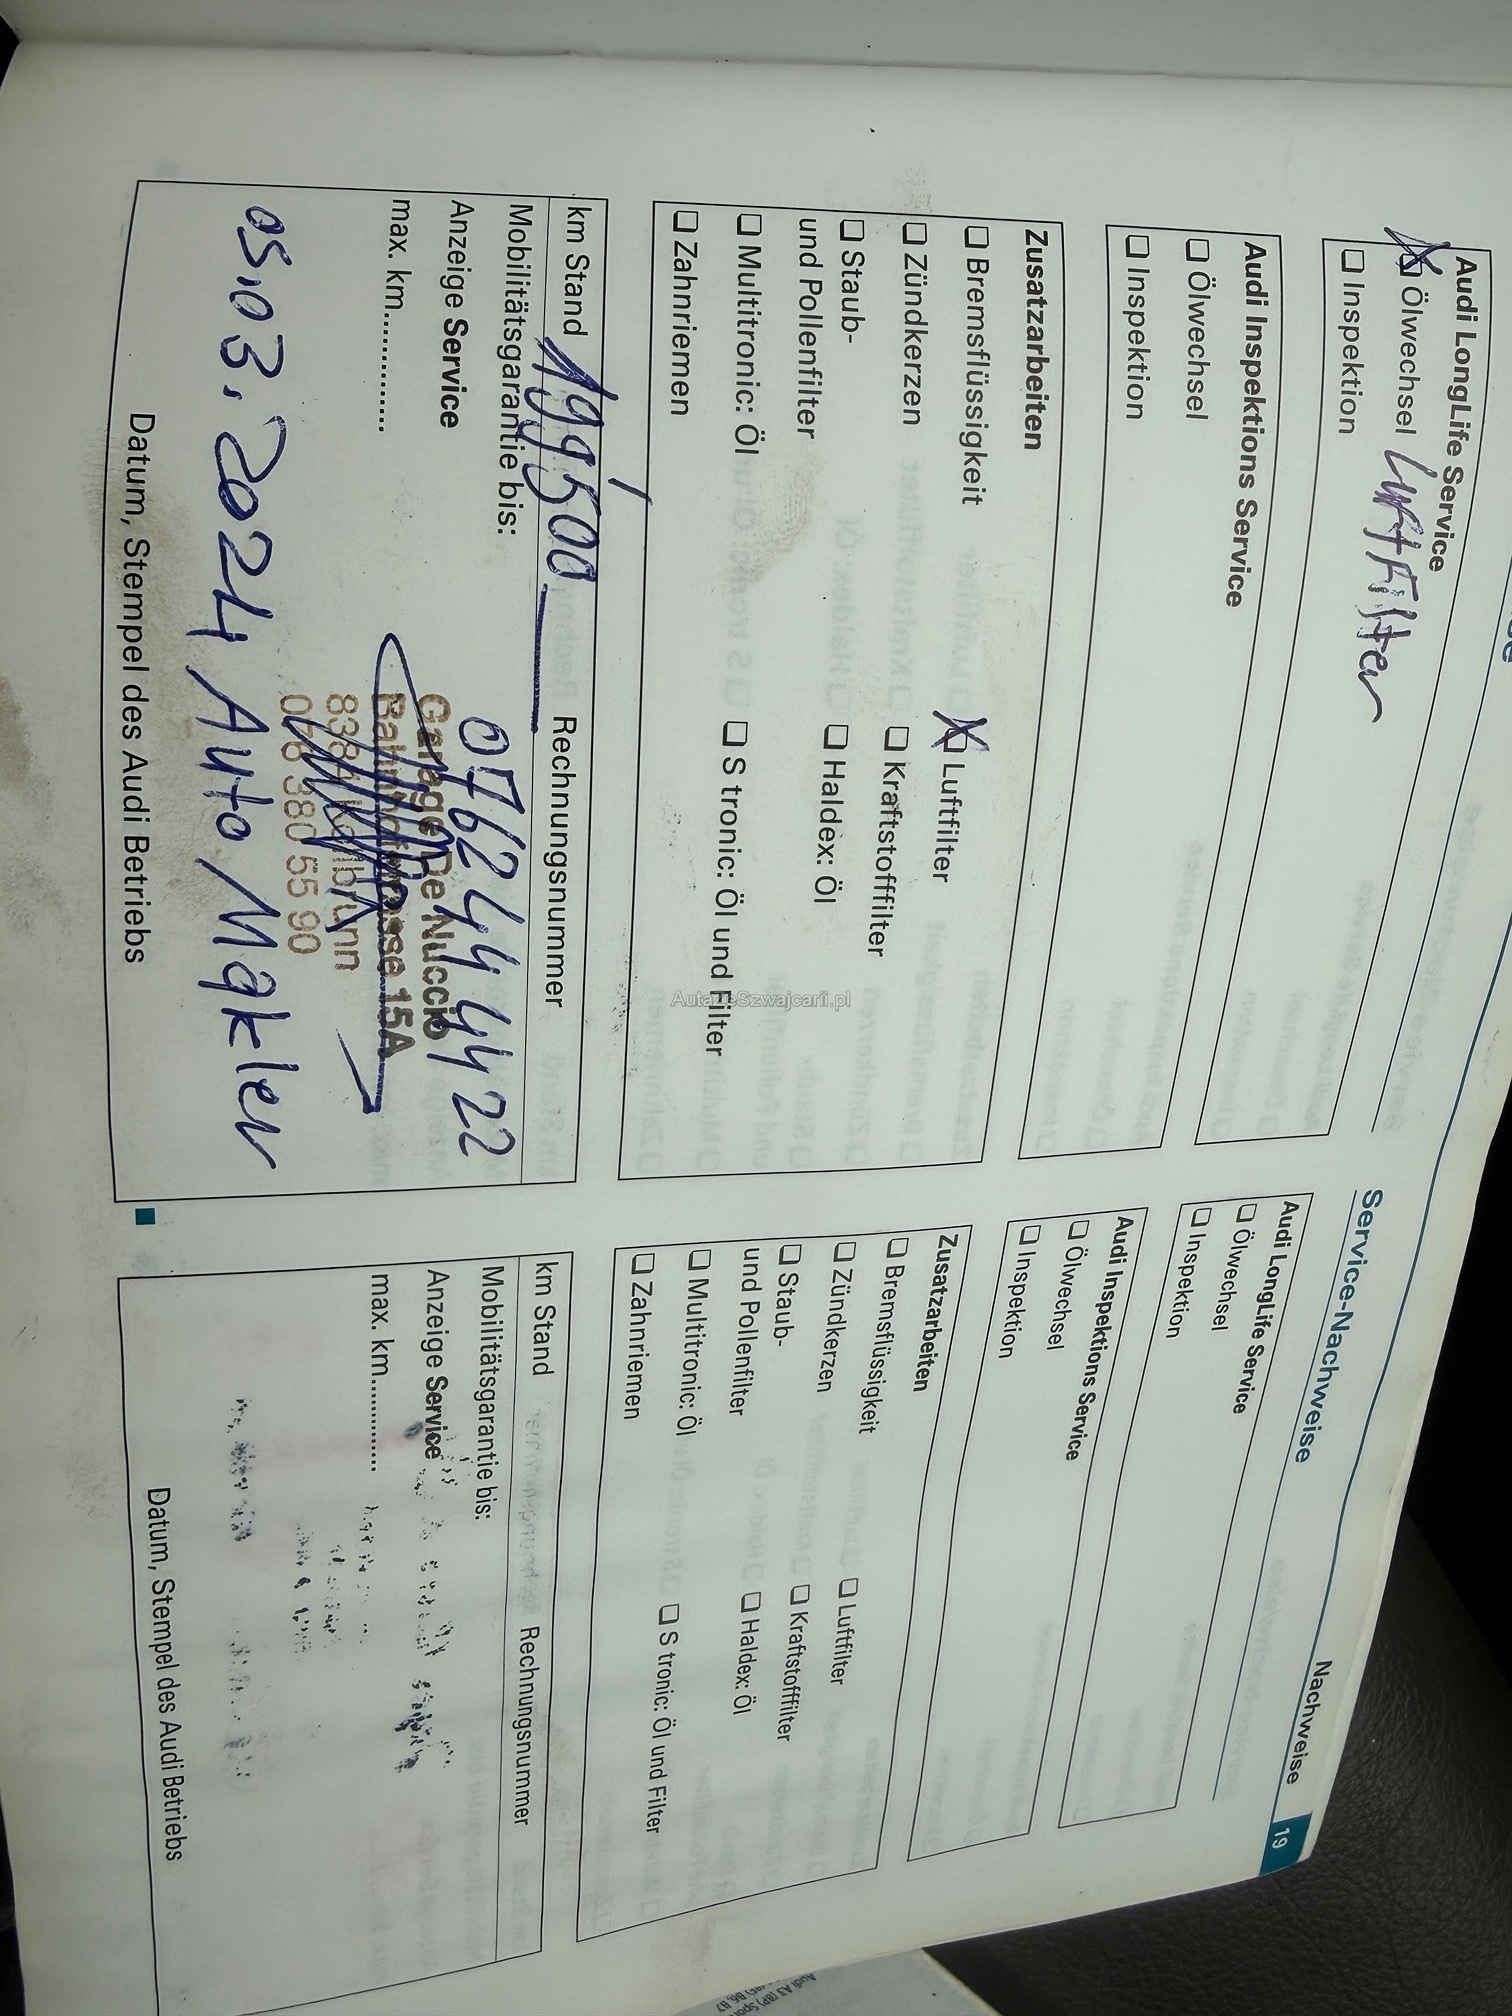 Nachweise 19
Audi LongLife Service
☒ Ölwechsel Luftfilter
☐ Inspektion
Audi Inspektions Service
☐ Ölwechsel
☐ Inspektion
Zusatzarbeiten
☐ Bremsflüssigkeit ☒ Luftfilter
☐ Zündkerzen ☐ Kraftstofffilter
☐ Staub- ☐ Haldex: Öl
und Pollenfilter
☐ Multitronic: Öl ☐ S tronic: Öl und Filter
☐ Zahnriemen
km Stand 199'500 Rechnungsnummer
Mobilitätsgarantie bis:
Anzeige Service
max. km..............
076 244 44 22
Garage De Nuccio
Bahnhofstrasse 15A
Kollbrunn
076 380 55 90
05.03.2024 Auto Makler
Datum, Stempel des Audi Betriebs
Service-Nachweise
Audi LongLife Service
☐ Ölwechsel
☐ Inspektion
Audi Inspektions Service
☐ Ölwechsel
☐ Inspektion
Zusatzarbeiten
☐ Bremsflüssigkeit ☐ Luftfilter
☐ Zündkerzen ☐ Kraftstofffilter
☐ Staub- ☐ Haldex: Öl
und Pollenfilter
☐ Multitronic: Öl ☐ S tronic: Öl und Filter
☐ Zahnriemen
km Stand Rechnungsnummer
Mobilitätsgarantie bis:
Anzeige Service
max. km..............
Datum, Stempel des Audi Betriebs
AutazeSzwajcarii.pl